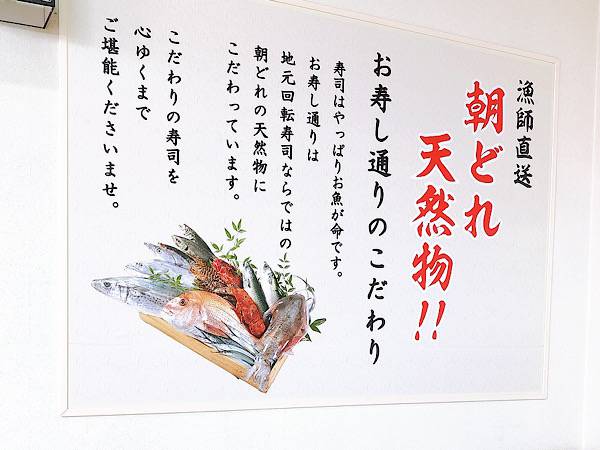 漁師直送
朝どれ
天然物!!
お寿し通りのこだわり
寿司はやっぱりお魚が命です。
お寿し通りは
地元回転寿司ならではの
朝どれの天然物に
こだわっています。
こだわりの寿司を
心ゆくまで
ご堪能くださいませ。